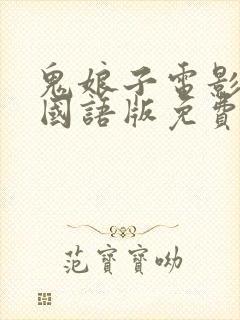 鬼娘子電影
國語版免費
范寶寶呦